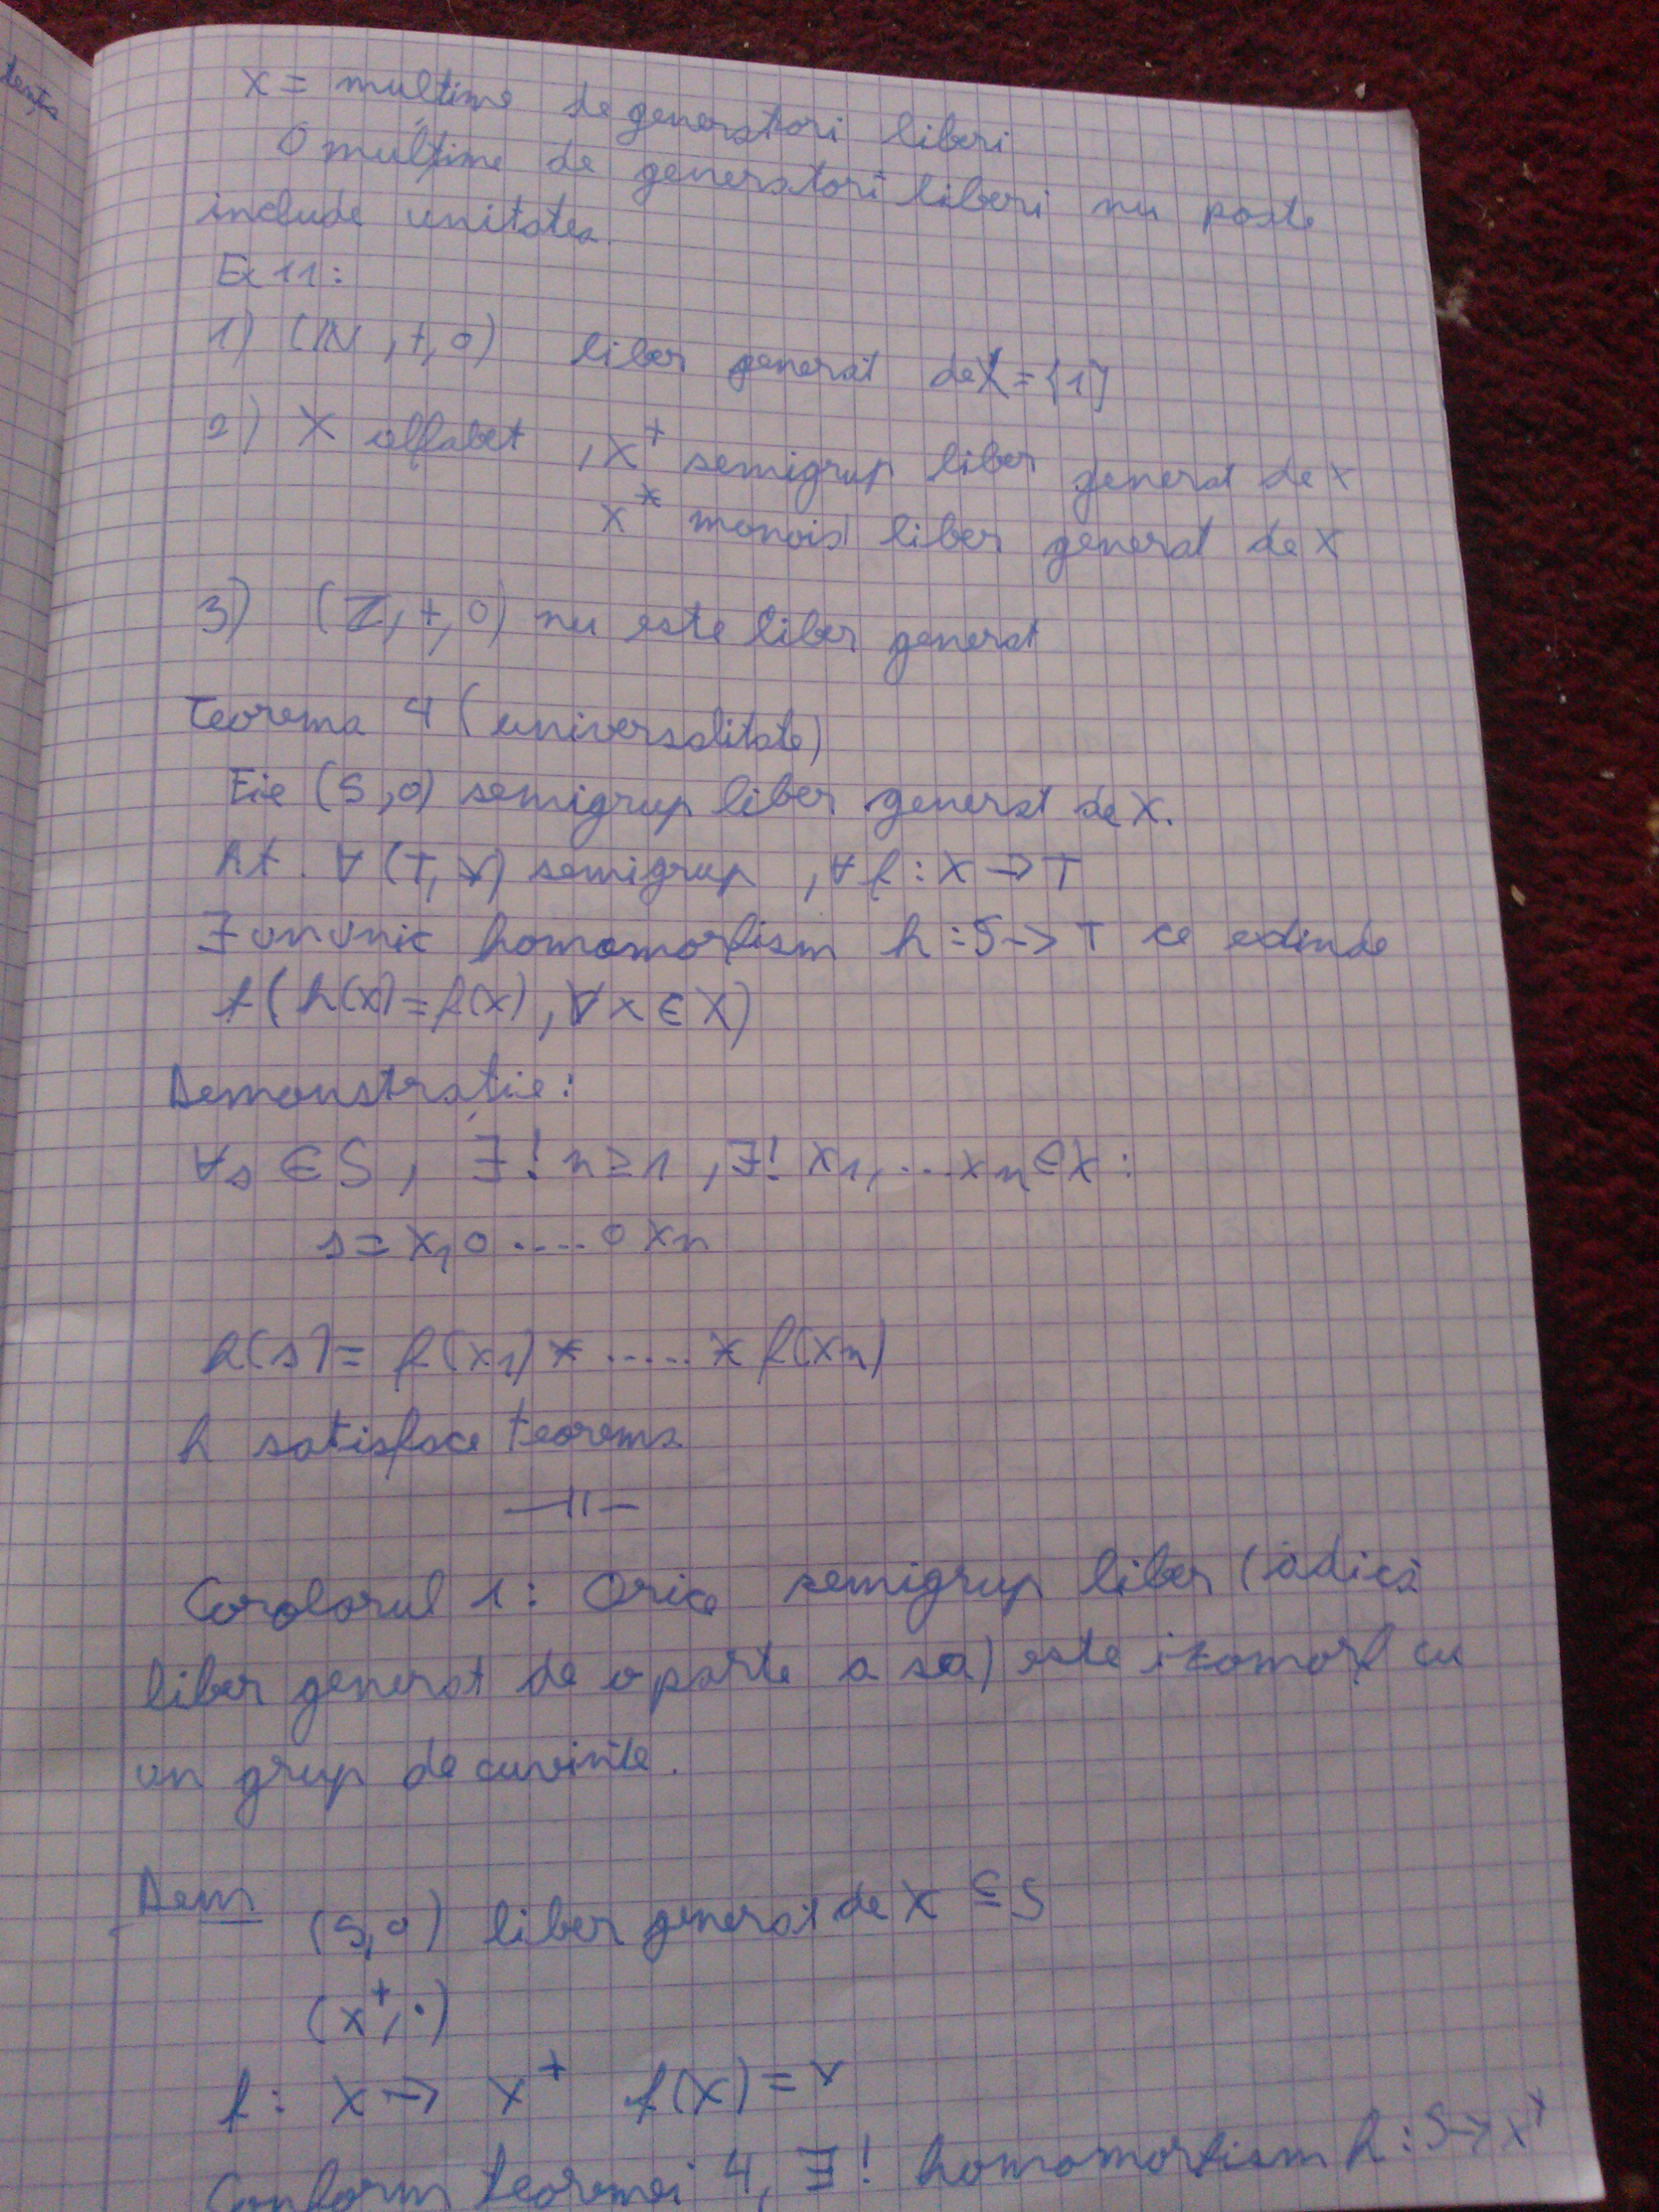 tenta
X = mulțime de generatori liberi
O mulțime de generatori liberi nu poate
include unitatea.
Ex 11:
1) (ℕ, +, 0) liber generat de X = {1}
2) X alfabet, X⁺ semigrup liber generat de X
X* monoid liber generat de X
3) (ℤ, +, 0) nu este liber generat
Teorema 4 (universalitate)
Fie (S, o) semigrup liber generat de X.
At. ∀ (T, *) semigrup, ∀ f : X → T
∃ un unic homomorfism h : S → T ce extinde
f (h(x) = f(x), ∀ x ∈ X)
Demonstrație:
∀ s ∈ S, ∃! n ≥ 1, ∃! x₁, ... xₙ ∈ X :
s = x₁ o .... o xₙ
h(s) = f(x₁) * ..... * f(xₙ)
h satisface teorema
—||—
Corolarul 1: Orice semigrup liber (adică
liber generat de o parte a sa) este izomorf cu
un grup de cuvinte.
Dem
(S, o) liber generat de X ⊆ S
(X⁺, ·)
f : X → X⁺ f(x) = x
Conform teoremei 4, ∃! homomorfism h : S → X⁺